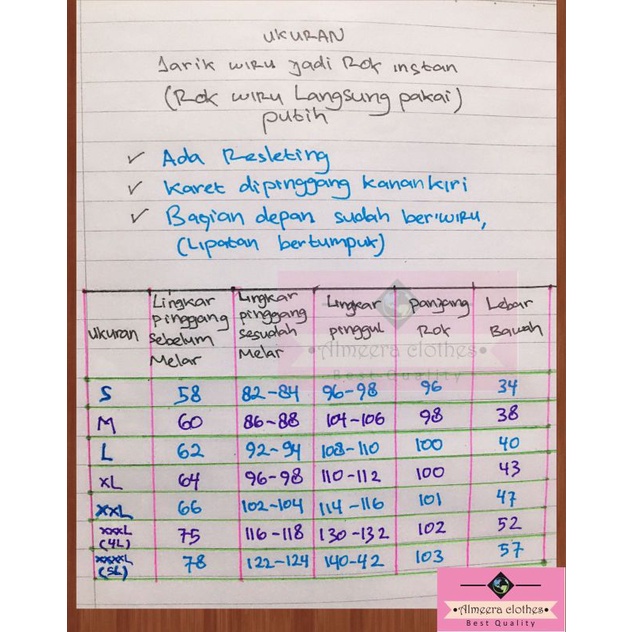 UKURAN
Jarik wiru jadi Rok instan
(Rok wiru Langsung pakai)
putih
✓ Ada Resleting
✓ Karet dipinggang kanan kiri
✓ Bagian depan sudah ber'wiru,
(Lipatan bertumpuk)
Ukuran | Lingkar pinggang sebelum Melar | Lingkar pinggang sesudah Melar | Lingkar pinggul | panjang Rok | Lebar Bawah
•Almeera clothes•
Best Quality
S 58 82-84 96-98 96 34
M 60 86-88 104-106 98 38
L 62 92-94 108-110 100 40
XL 64 96-98 110-112 100 43
XXL 66 102-104 114-116 101 47
XXXL (4L) 75 116-118 130-132 102 52
XXXXL (5L) 78 122-124 140-42 103 57
•Almeera clothes•
Best Quality